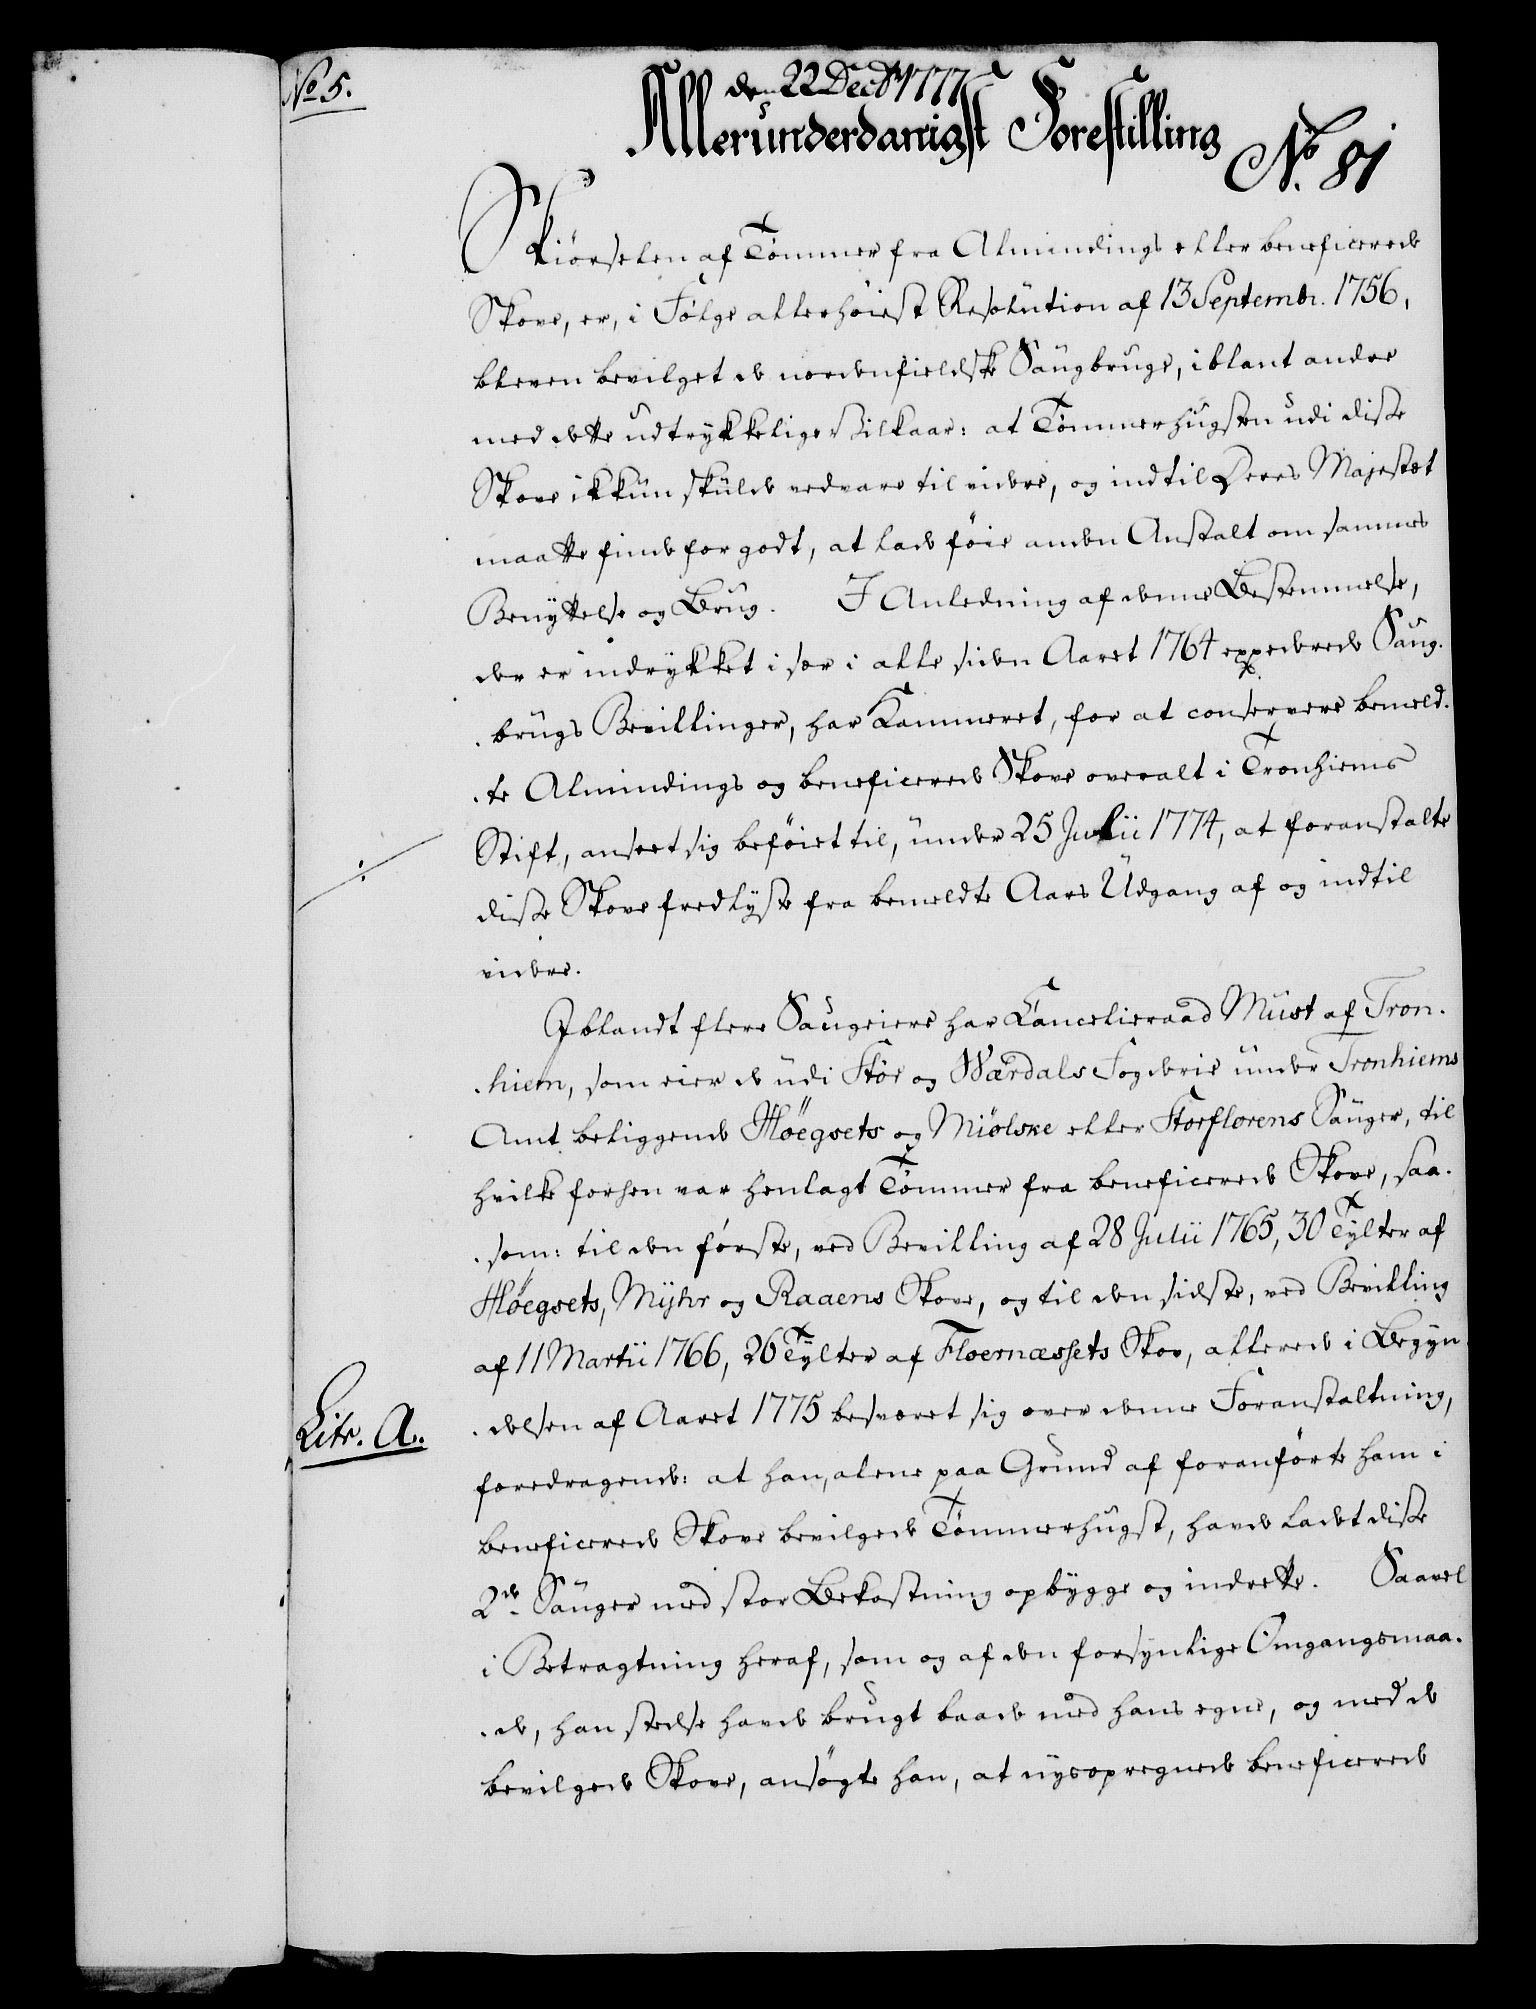 No 5.
den 22 Decbr 1777
Allerunderdanigst Forestilling
No. 81
Kiörselen af Tømmer fra Almindings eller beneficerede
Skove, er, i Følge allerhöiest Resolution af 13 Septembr. 1756,
bleven bevilget de nordenfieldske Saugbruge, iblant andre
med dette udtrykkelige Vilkaar: at Tømmerhugsten udi disse
Skove ikkun skulde vedvare til videre, og indtil Deres Majestæt
maatte finde for godt, at lade föie anden Anstalt om sammes
Benyttelse og Brug. I Anledning af denne Bestemmelse,
der er indrykket i sær i alle siden Aaret 1764 expederede Saug-
brugs Bevillinger, har Kammeret, for at conservere bemeld-
te Almindings og beneficerede Skove overalt i Tronhiems
Stift, anseet sig beföiet til, under 25 Julii 1774, at foranstalte
disse Skove fredlyste fra bemeldte Aars Udgang af og indtil
videre.
Iblandt flere Saugeiere har Cancelieraad Must af Tron-
hiem, som eier de udi Stör og Wærdals Fogderie under Tronhiems
Amt beliggende Höegsets og Miölske eller Storflorens Sauger, til
hvilke forhen var henlagt Tømmer fra beneficerede Skove, saa-
som: til den förste, ved Bevilling af 28 Julii 1765, 30 Tylter af
Höegsets, Myhr og Raaens Skove, og til den sidste, ved Bevilling
af 11 Martii 1766, 26 Tylter af Floernæssets Skov, allerede i Begyn
delsen af Aaret 1775 besværet sig over denne Foranstaltning,
Litr. A.
foredragende: at han, alene paa Grund af foranförte ham i
beneficerede Skove bevilgede Tømmerhugst, havde ladet disse
2de Sauger med stor Bekostning opbygge og indrette. Saavel
i Betragtning heraf, som og af den forsynlige Omgangsmaa-
de, han stedse havde brugt baade med hans egne, og med de
bevilgede Skove, ansögte han, at nysopregnede beneficerede